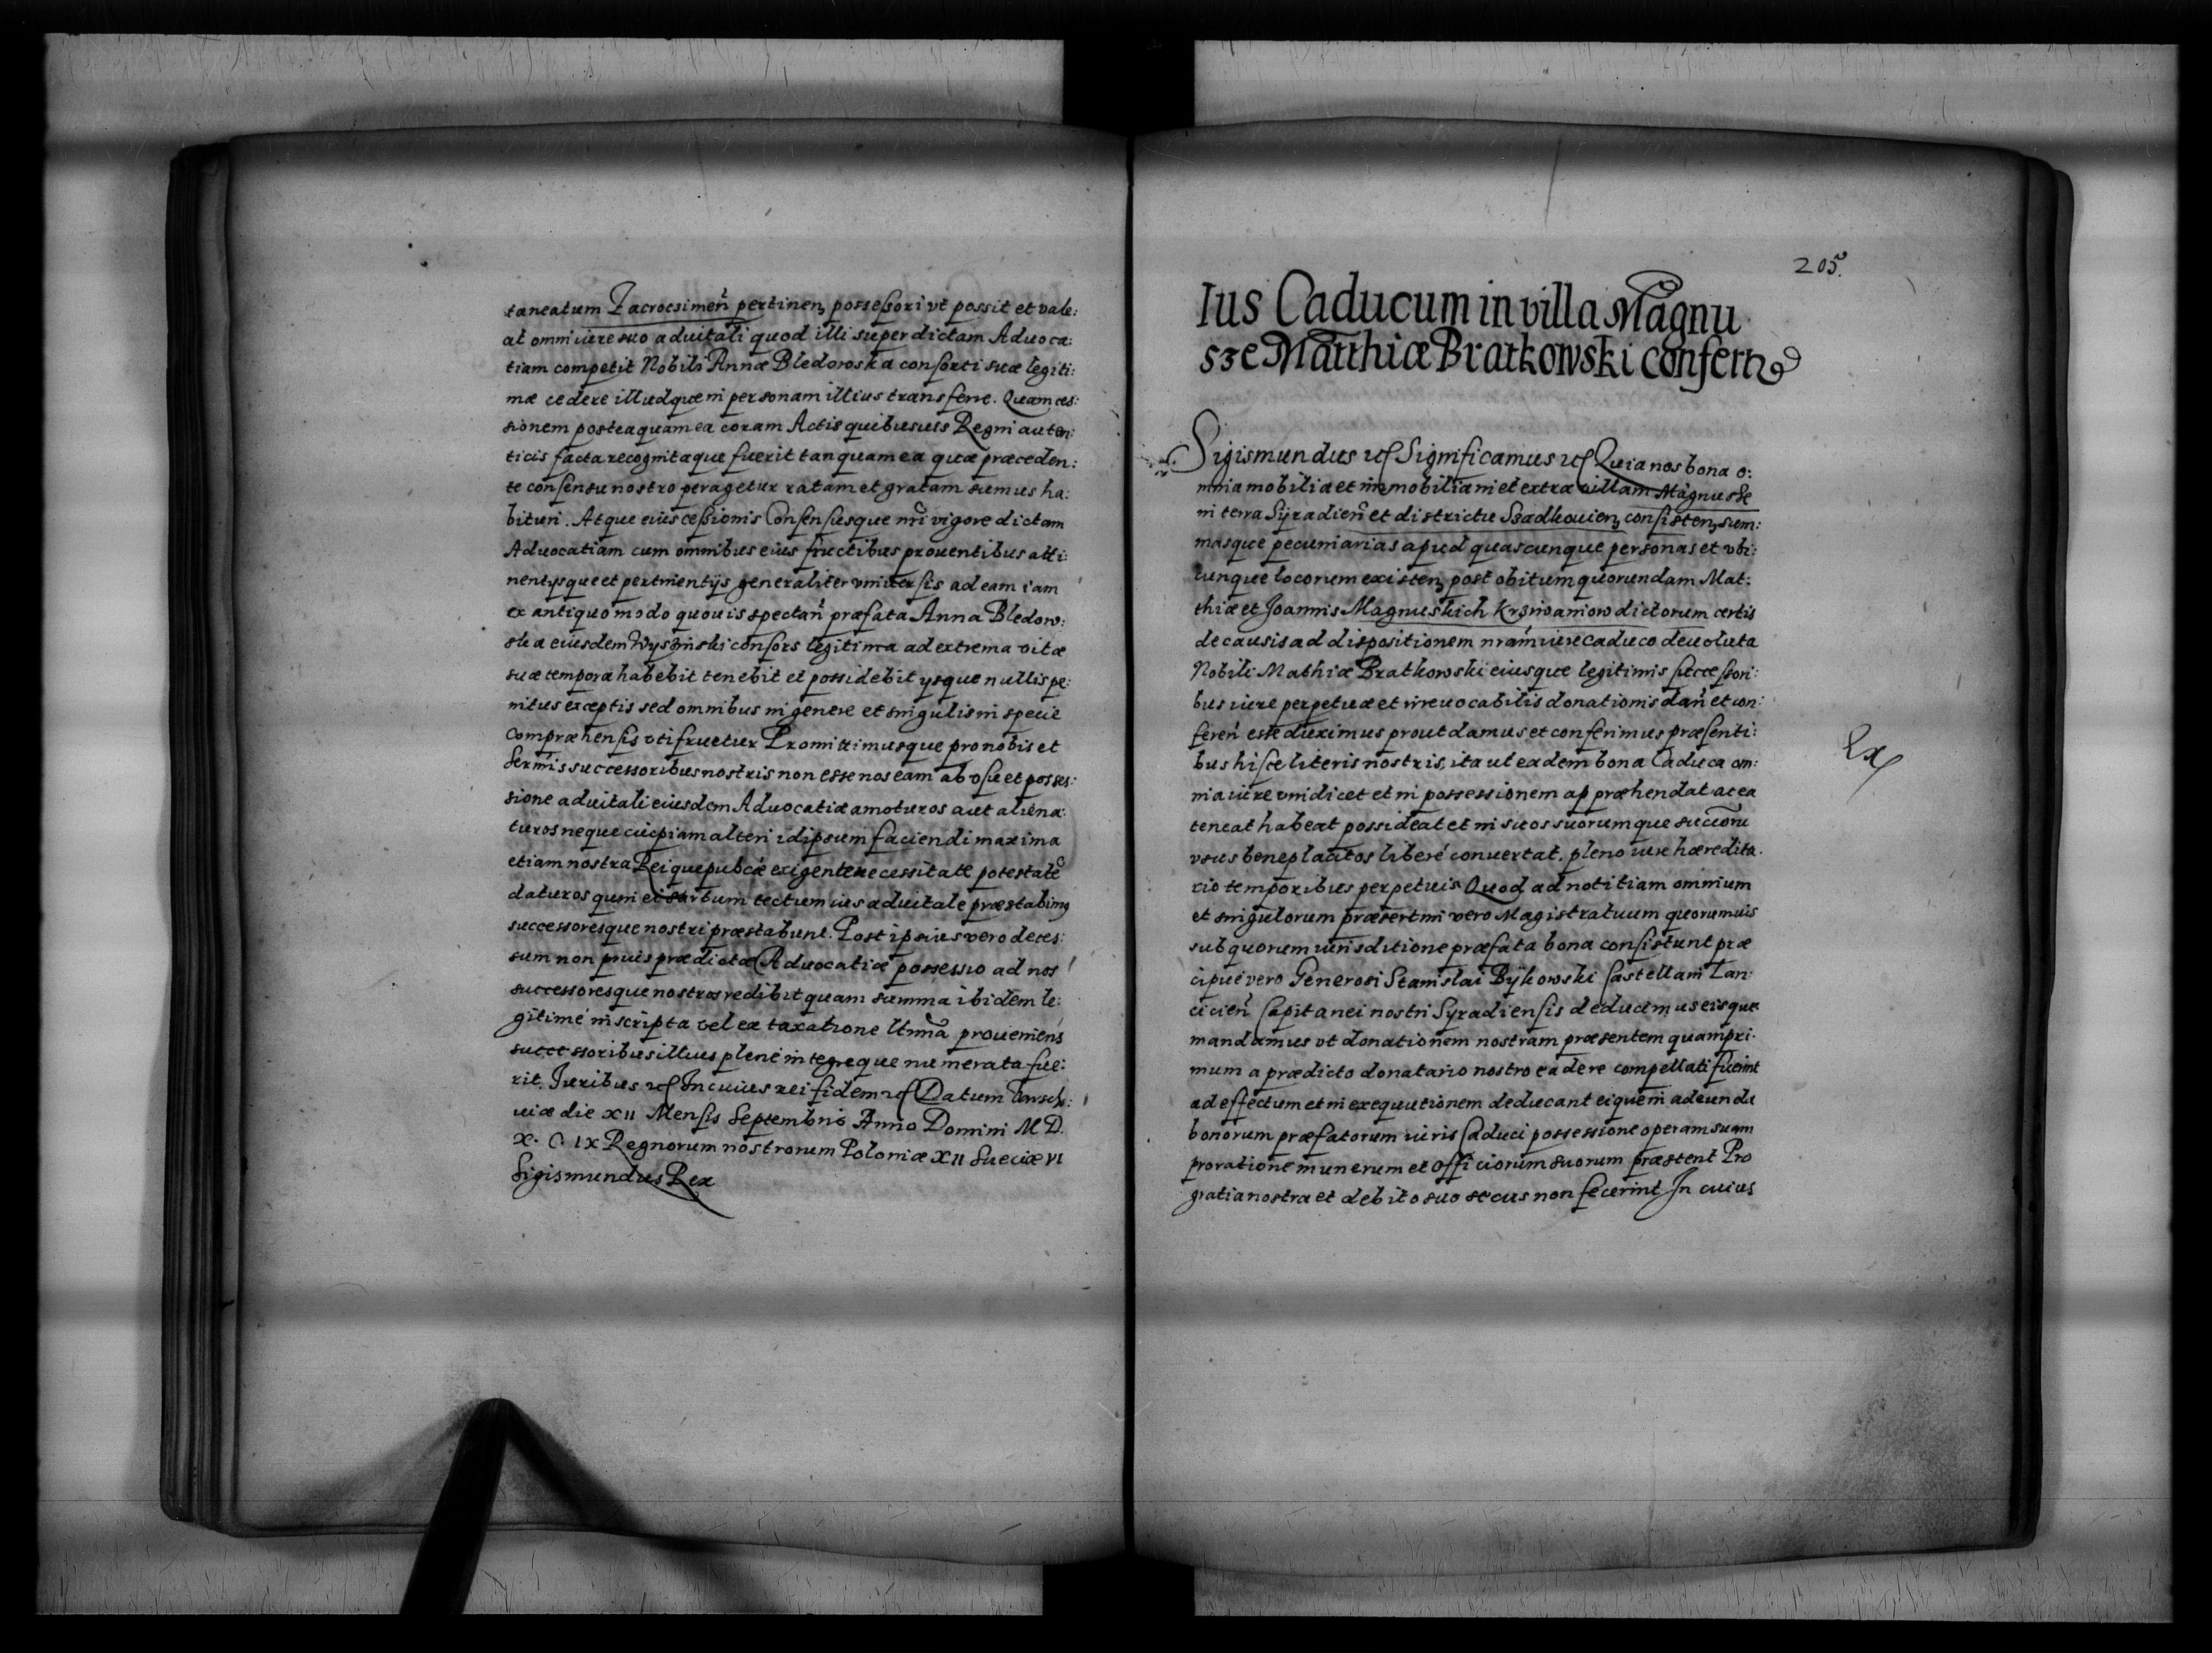 taneatum Zacroesimen̄ pertinen, possessori vt possit et vale:
at omni iure suo aduitali quod illi super dictam Aduoca:
tiam competit Nobili Annæ Bledowska consorti suæ legiti:
mæ cedere illudque in personam illius transferre. Quam ces:
sionem posteaquam ea coram Actis quibusuis Regni auten:
ticis facta recognitaque fuerit tanquam ea quæ præceden:
te consensu nostro peragetur ratam et gratam sumus ha:
bituri. Atque eius cessionis Consensusque nr̄i vigore dictam
Aduocatiam cum omnibus eius fructibus prouentibus atti:
nentysque et pertinentys generaliter vniuersis ad eam iam
ex antiquo modo quouis spectan̄ præfata Anna Bledow:
ska eiusdem Wyszinski consors legitima ad extrema vitæ
suæ tempora habebit tenebit et possidebit ysque nullis pe:
nitus exceptis sed omnibus in genere et singulis in specie
compræhensis vti fruetur Promittimusque pro nobis et
Serm̄is successoribus nostris non esse nos eam ab vsu et posses:
sione aduitali eiusdem Aduocatiæ amoturos aut aliena:
turos neque cuipiam alteri idipsum faciendi maxima
etiam nostra Reique pubcæ exigente necessitate potestatē
daturos quin ei sartum tectum ius aduitale præstabimus
successoresque nostri præstabunt. Post ipsius vero deces:
sum non prius prædictæ Aduocatiæ possessio ad nos
successoresque nostros redibit quam summa ibidem le:
gitimé inscripta vel ex taxatione ltm̄a proueniens
successoribus illius plené integreque numerata fue:
rit. Iuribus etc In cuius rei fidem etc Datum Varscho:
uiæ die XII Mensis Septembris Anno Domini M D.
X. C. IX Regnorum nostrorum Poloniæ XII Sueciæ VI
Sigismundus Rex
205.
Ius Caducum in villa Magnu
sze Matthiæ Bratkowski confertur
Sigismundus etc Significamus etc Quia nos bona o:
mnia mobilia et immobilia in et extra villam Magnusze
in terra Syradien̄ et districtu Szadkouien, consisten, sum:
masque pecuniarias apud quascunque personas et vbi:
cunque locorum existen, post obitum quorundam Mat:
thiæ et Joannis Magnuskich Krziwaniow dictorum certis
de causis ad dispositionem nram̄ iure caduco deuoluta
Nobili Mathiæ Bratkowski eiusque legitimis successori:
bus iure perpetuæ et irreuocabilis donationis dan̄ et con:
feren̄ esse duximus prout damus et conferimus præsenti:
bus hisce literis nostris, ita ut eadem bona Caduca om:
nia iure vindicet et in possessionem appræhendat ac ea
teneat habeat possideat et in suos suorumque succōru
vsus beneplacitos liberé conuertat. pleno iure hæredita.
rio temporibus perpetuis Quod ad notitiam omnium
et singulorum præsertim vero Magistratuum quorumuis
sub quorum iurisditione præfata bona consistunt præ
cipué vero Generosi Stanislai Bykowski Castellani Lan:
cicien̄ Capitanei nostri Syradiensis deducimus eisque
mandamus vt donationem nostram præsentem quampri.
mum a prædicto donatario nostro ea de re compellati fuerint
ad effectum et in exequutionem deducant eique in adeunda
bonorum præfatorum iuris Caduci possessione operam suam
pro ratione munerum et officiorum suorum præstent Pro
gratia nostra et debito suo secus non fecerint In cuius